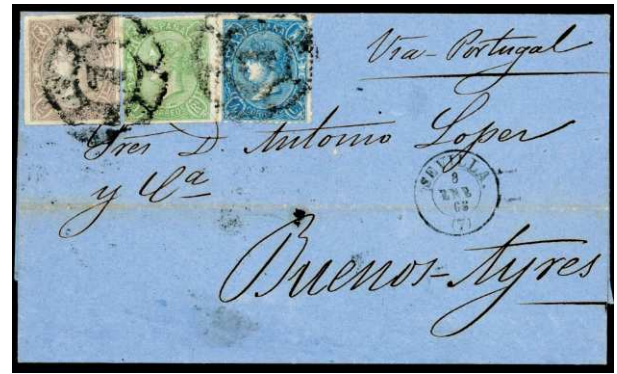 Via-Portugal
Sres D. Antonio Lopez
y Cª
SEVILLA.
ENE
(7)
Buenos-Ayres